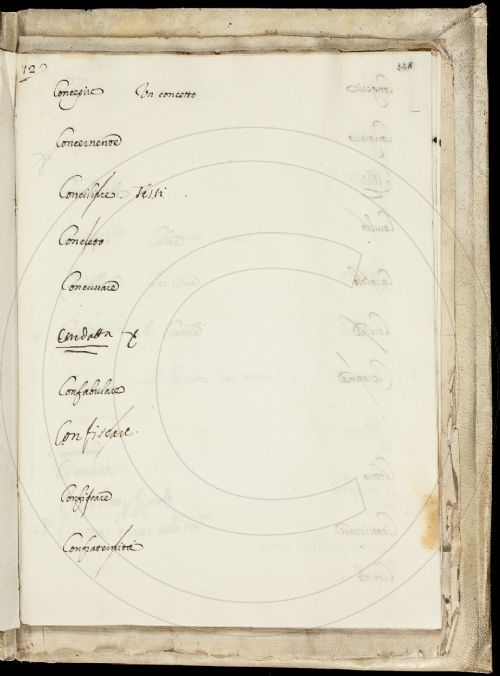 12
328
Concepire Un concetto
Concernente
Conciliare Testi
Concesso
Concussare
Condotta x
Confabulare
Confiscare.
Confiscare
Confraternità